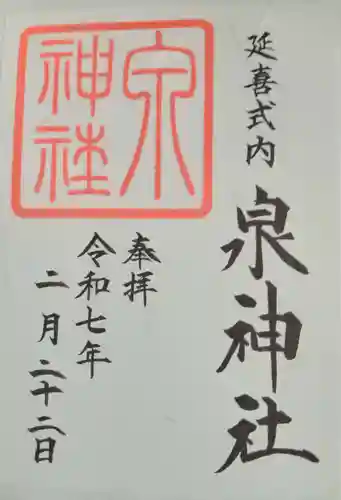 延喜式内
泉神社
奉拝
令和七年
二月二十二日
泉
神社